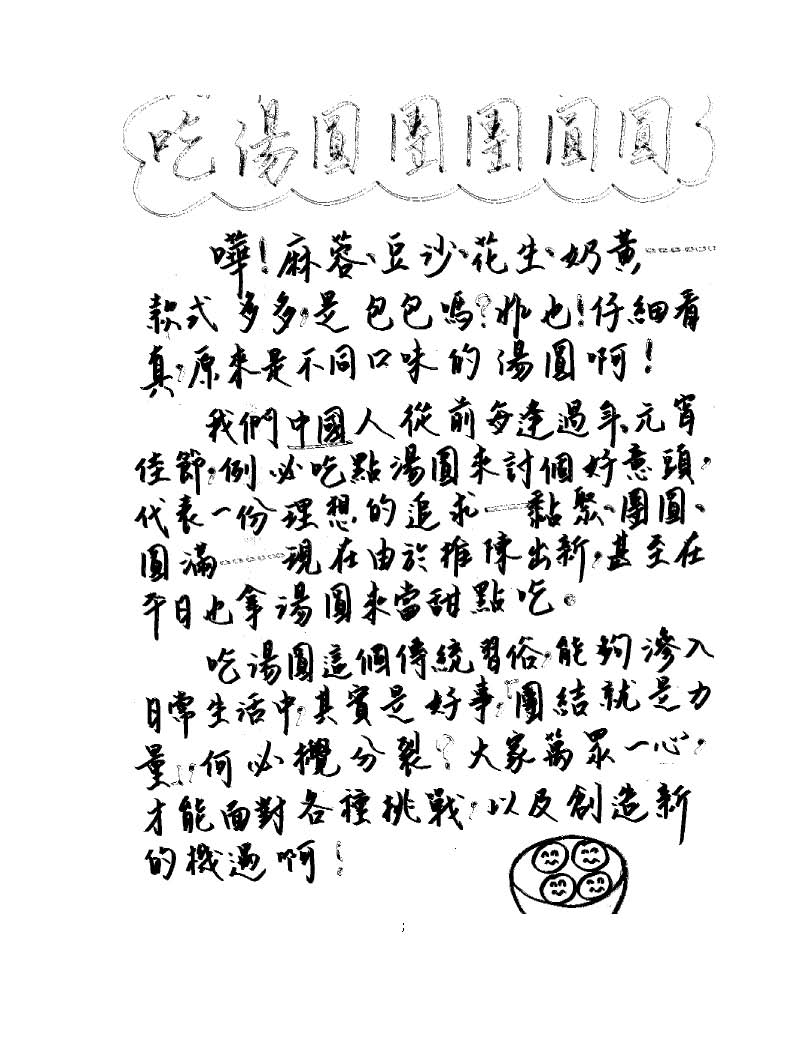 吃湯圓團團圓圓
嘩!麻蓉、豆沙、花生、奶黃……
款式多多,是包包嗎?非也!仔細看
真,原來是不同口味的湯圓啊!
我們中國人從前每逢過年、元宵
佳節,例必吃點湯圓來討個好意頭,
代表一份理想的追求—黏聚、團圓、
圓滿……現在由於推陳出新,甚至在
平日也拿湯圓來當甜點吃。
吃湯圓這個傳統習俗,能夠滲入
日常生活中,其實是好事,「團結就是力
量」,何必攪分裂?大家萬眾一心,
才能面對各種挑戰,以及創造新
的機遇啊!